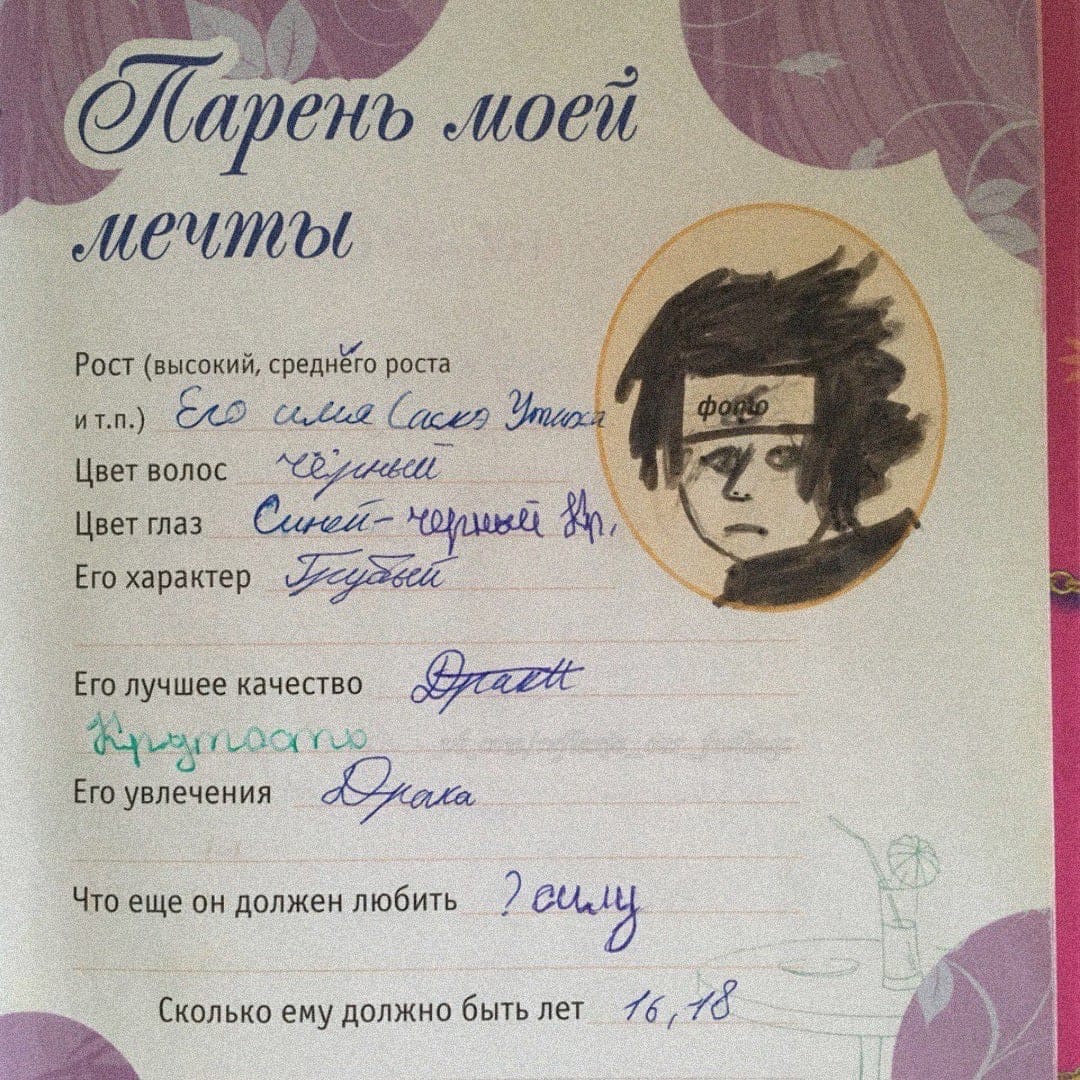 Парень моей
мечты
Рост (высокий, среднего роста
и т.п.) Его имя Саскэ Утиха
фото
Цвет волос чёрный
Цвет глаз Синей-черный Кр.
Его характер Грубый
Его лучшее качество Драки
Крутость
Его увлечения Драка
Что еще он должен любить ? силу
Сколько ему должно быть лет 16, 18